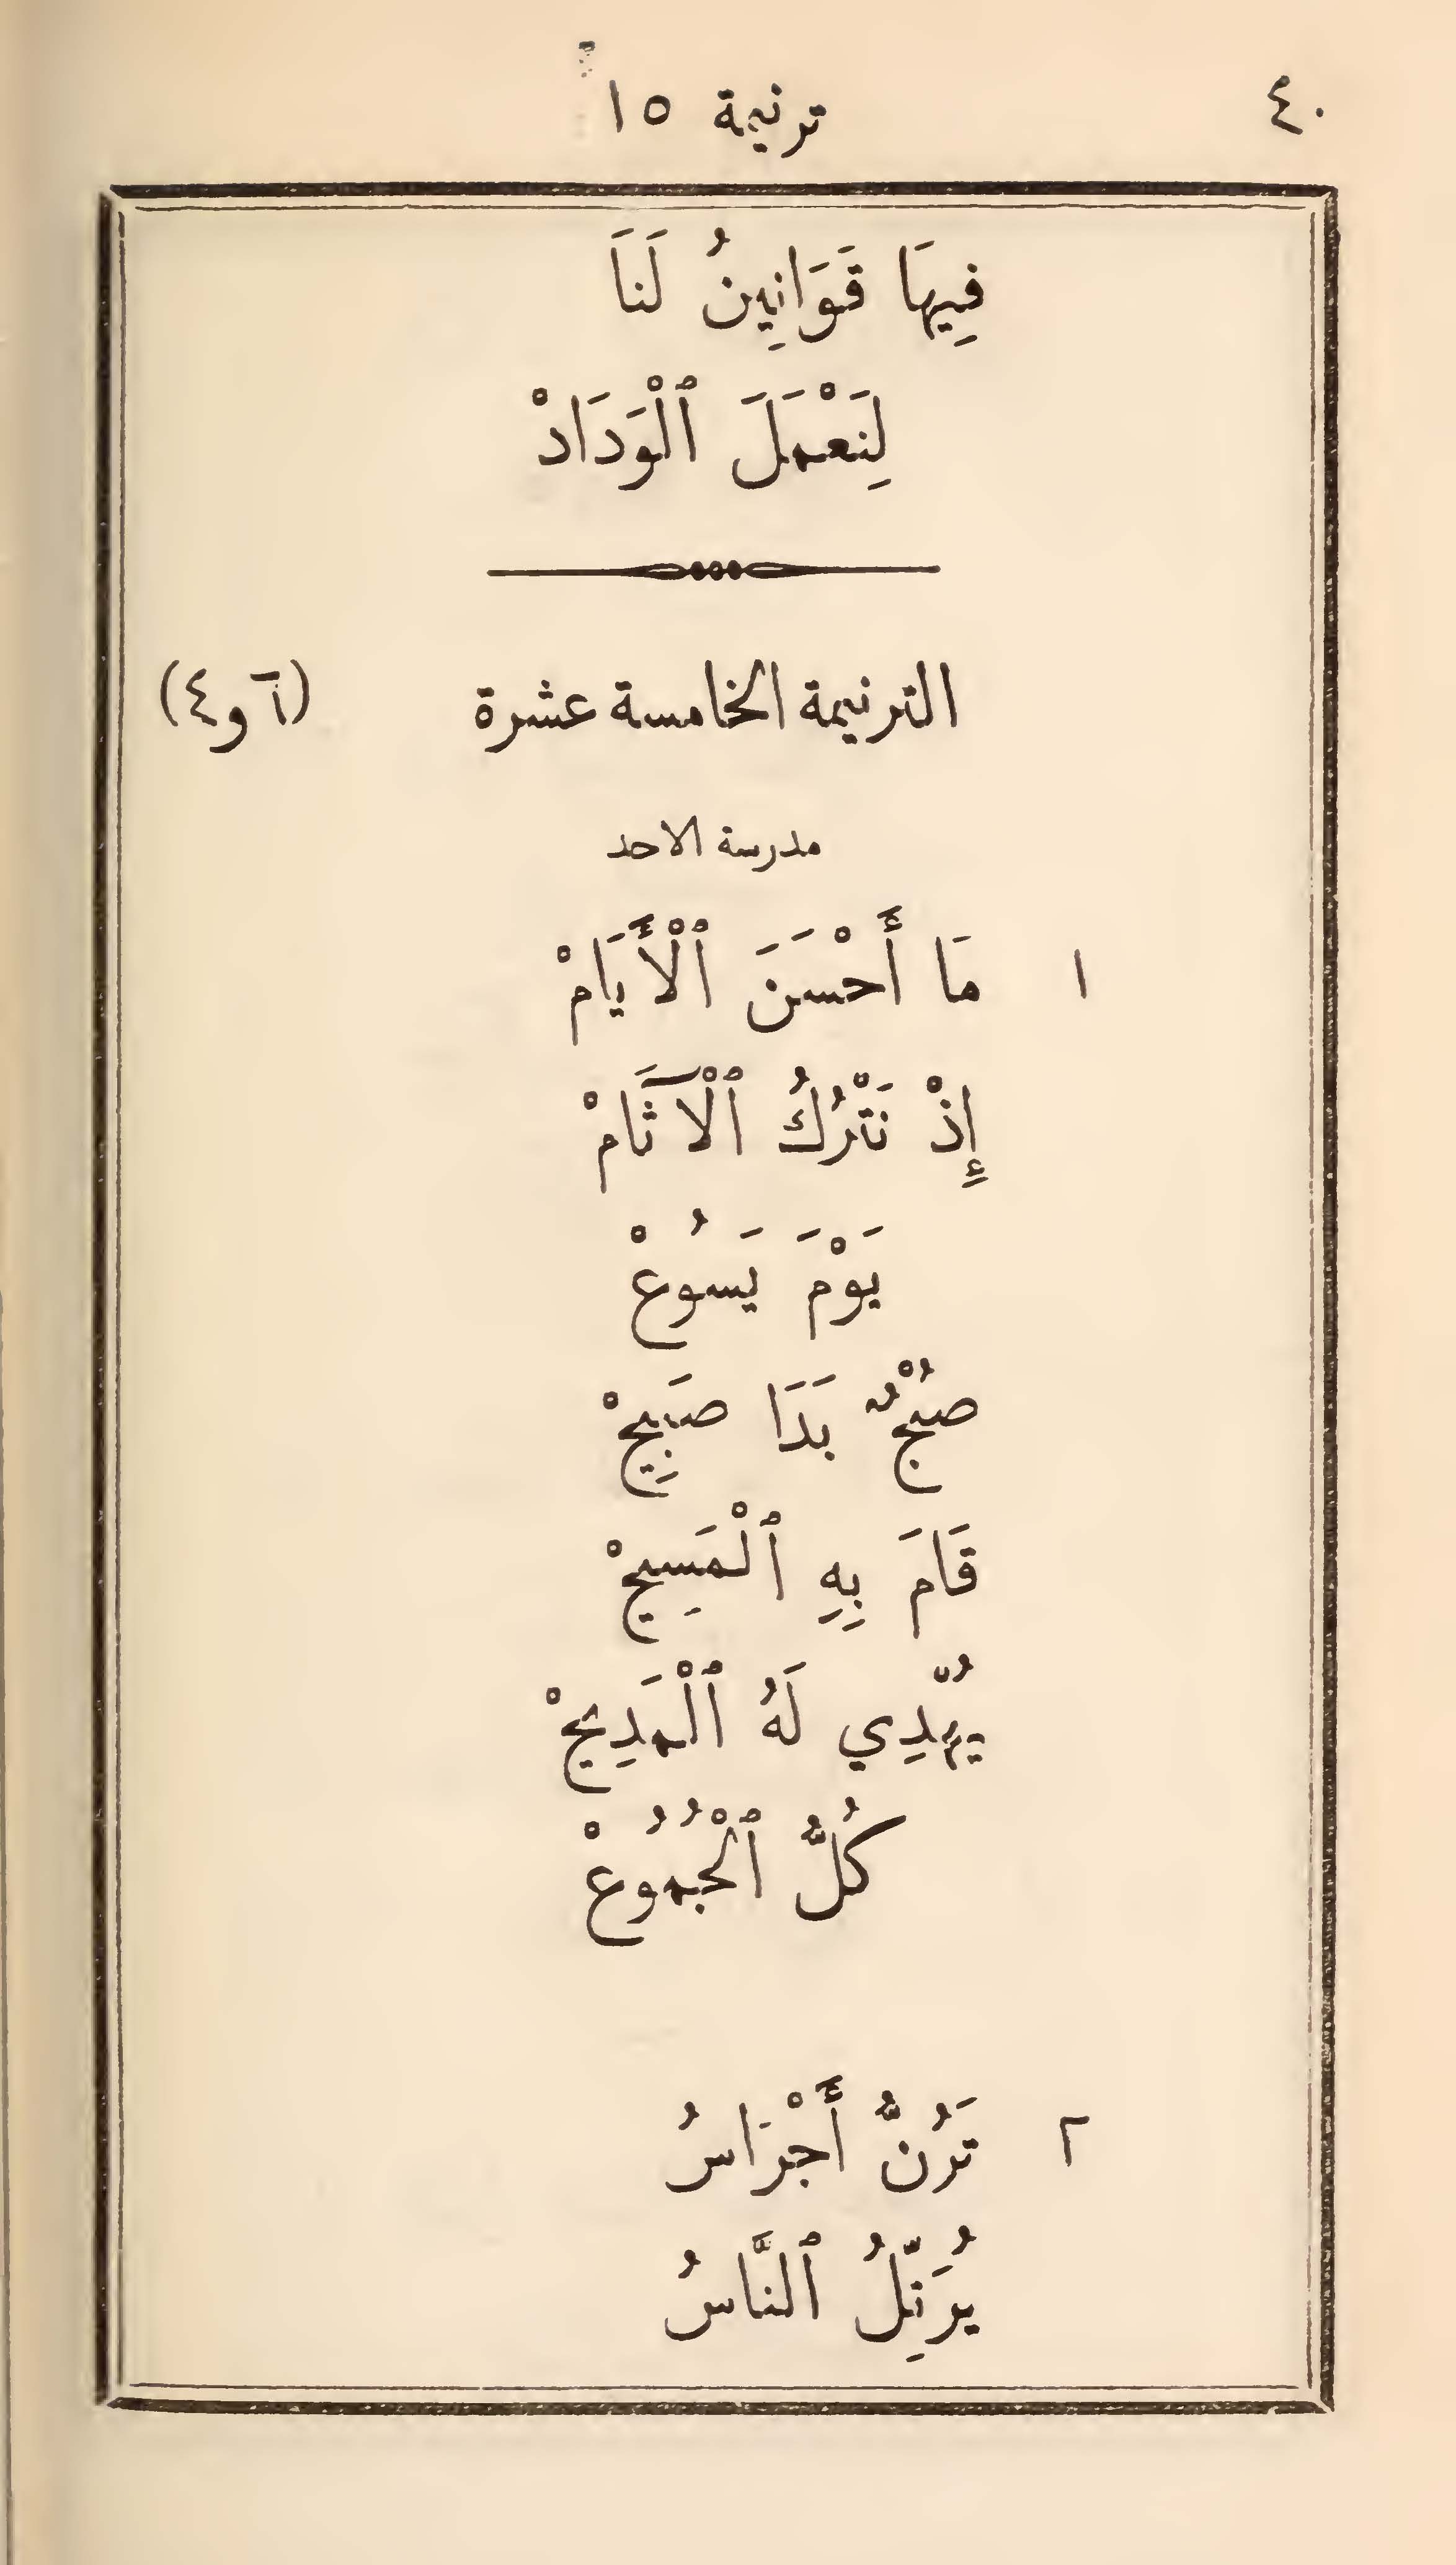 ٤٠ ترنيمة ١٥
فِيهَا قَوَانِينُ لَنَا
لِنَعْمَلَ ٱلْوَدَادْ
الترنيمة الخامسة عشرة (٦ و٤)
مدرسة الاحد
١ مَا أَحْسَنَ ٱلْأَيَامْ
إِذْ نَتْرُكُ ٱلْآثَامْ
يَوْمَ يَسُوعْ
صُبْحٌ بَدَا صَبِيحْ
قَامَ بِهِ ٱلْمَسِيحْ
يُهْدِي لَهُ ٱلْمَدِيحْ
كُلُّ ٱلْجُمُوعْ
٢ تَرُنُّ أَجْرَاسُ
يُرَتِّلُ ٱلنَّاسُ